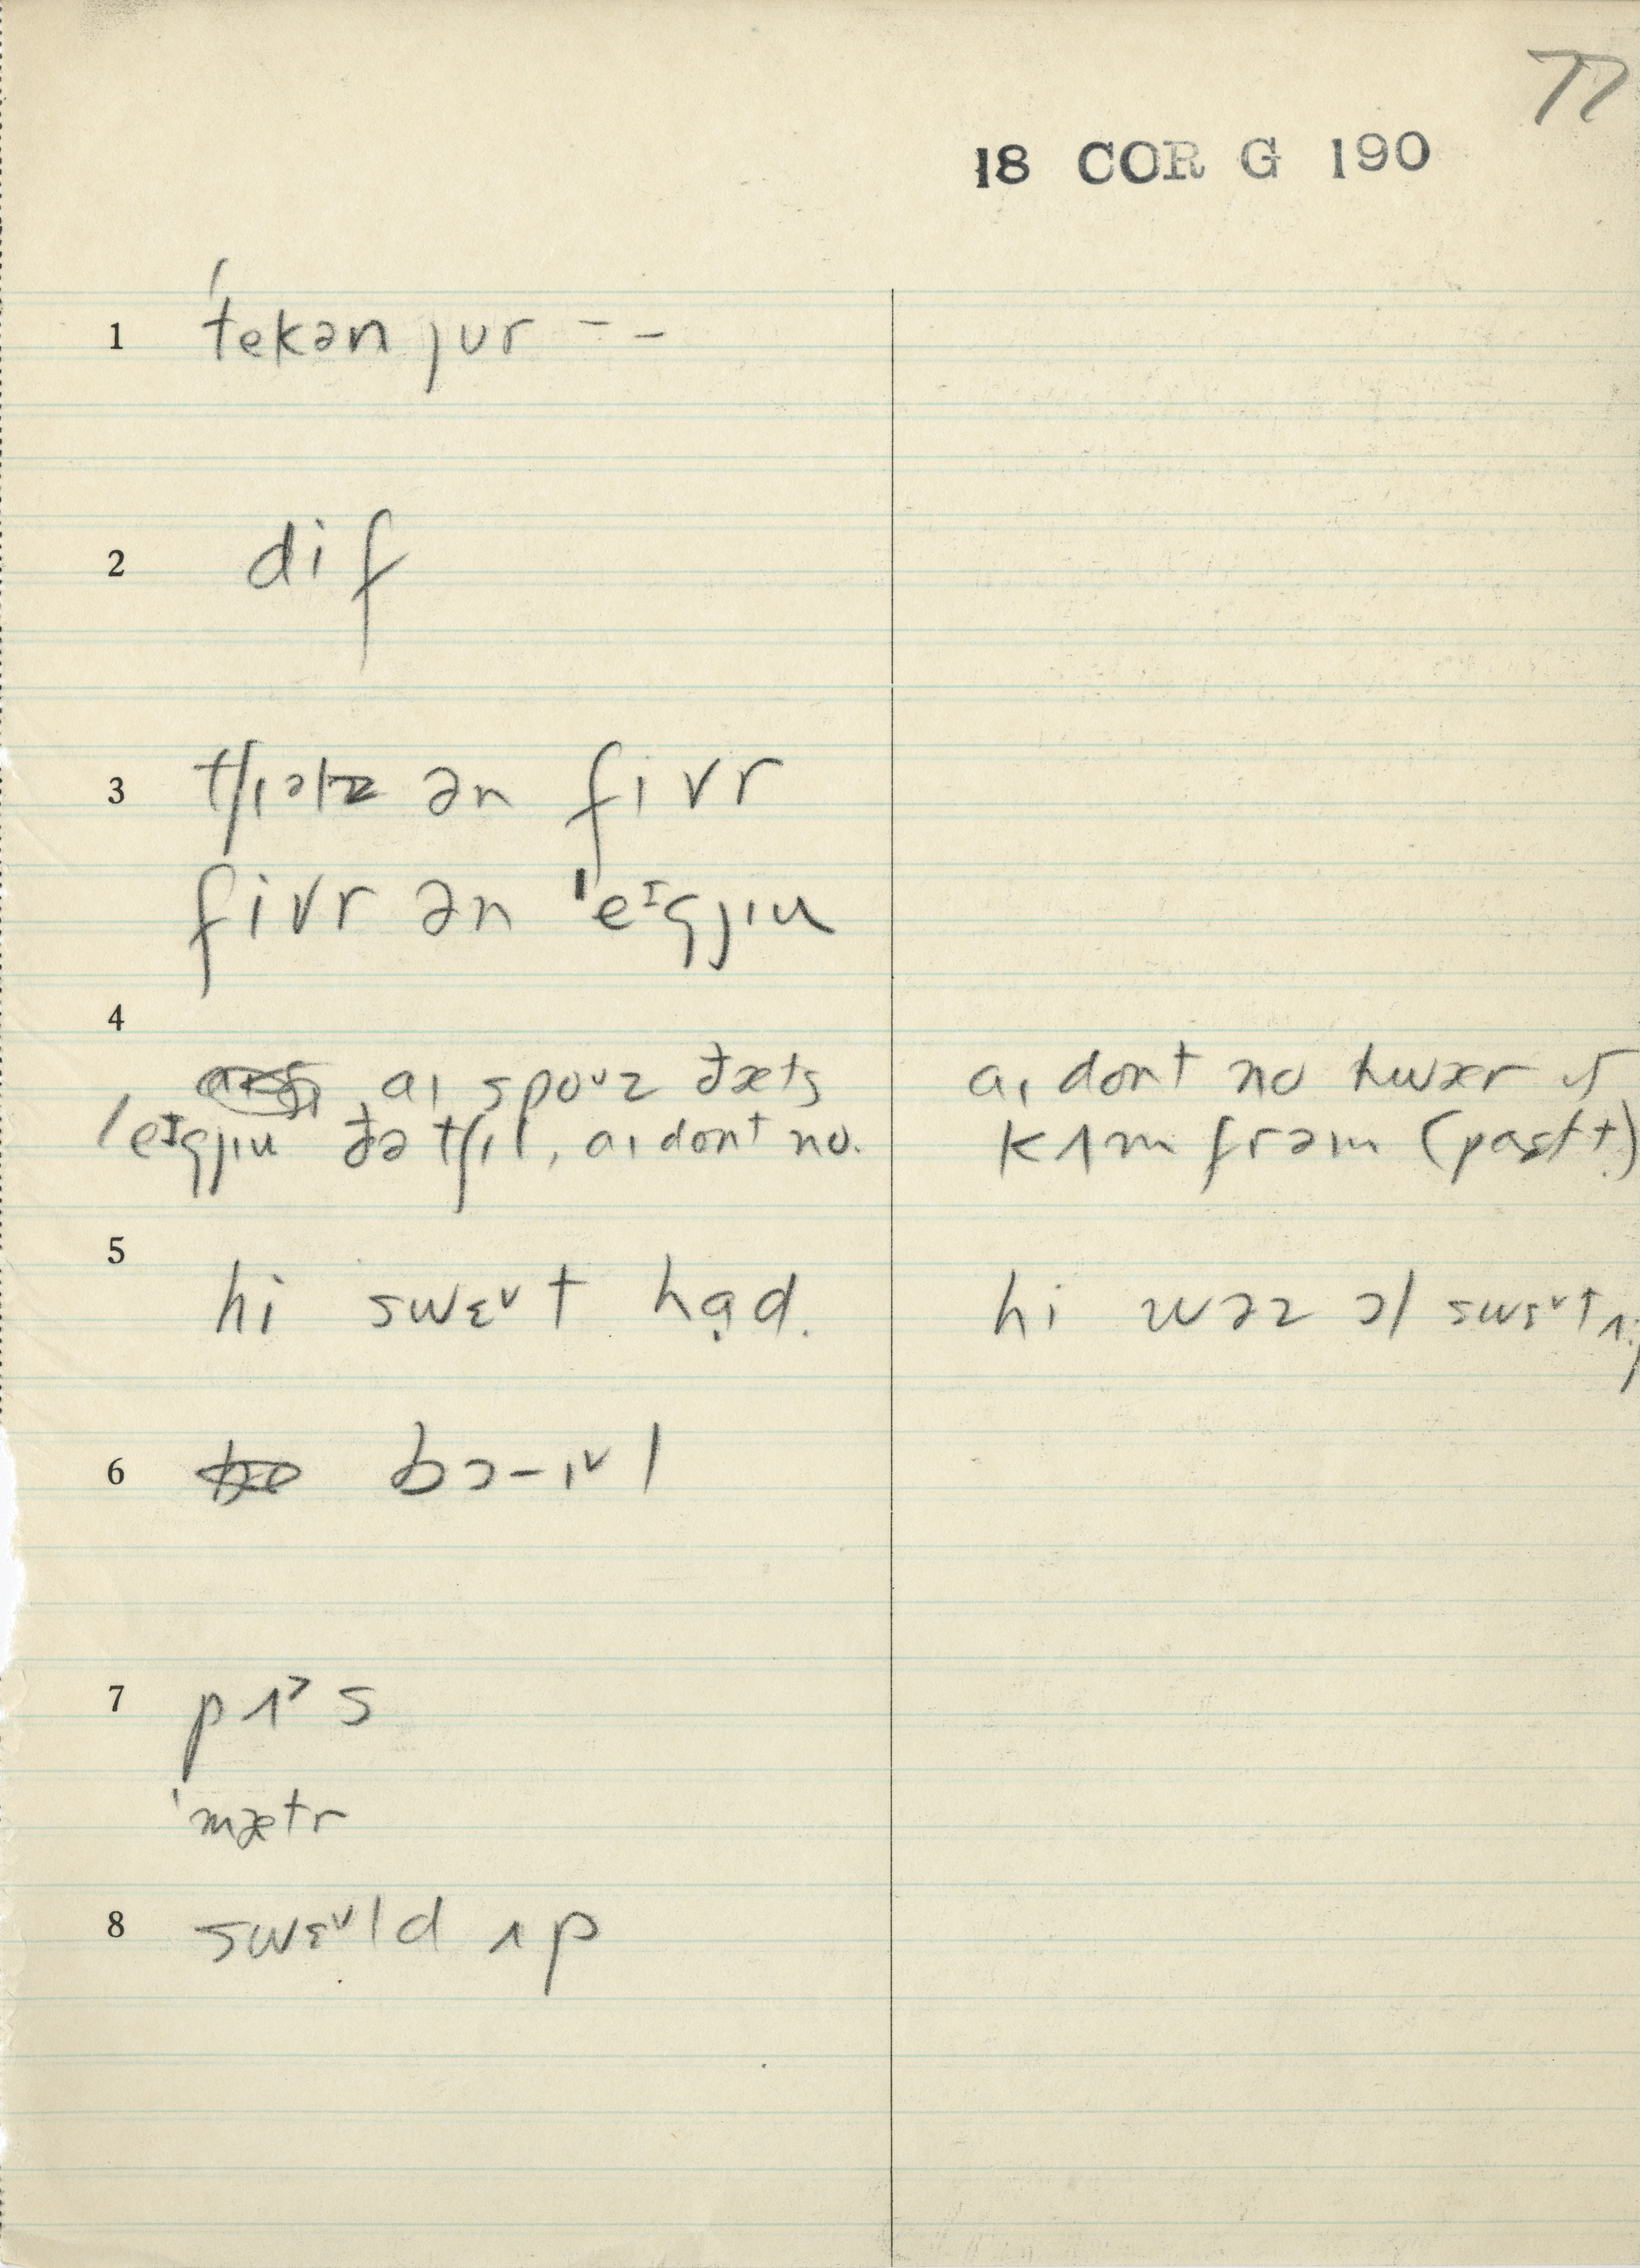 77
18 COR G 190
1 ˈtekən ȷur - -
2 dif
3 tʃɪəlz ən fɪvr
fivr ən ˈeᶦgjɪu
4
aɪ spoᵛz ðæts
ˈeᶦgjɪu ðə tʃɪl, aɪ dont no.
aɪ dont no hwær ɪt
kʌm frəm (past t)
5
hi swɛᵛt hạd.
hi wəz ɔl swɛᵛtɪŋ
6 bɔ-ɪᵛl
7 pʌ˃s
ˈmætr
8 swɛᵛld ʌp